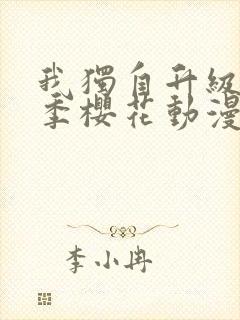 我獨自升級
季櫻花動漫
李小冉